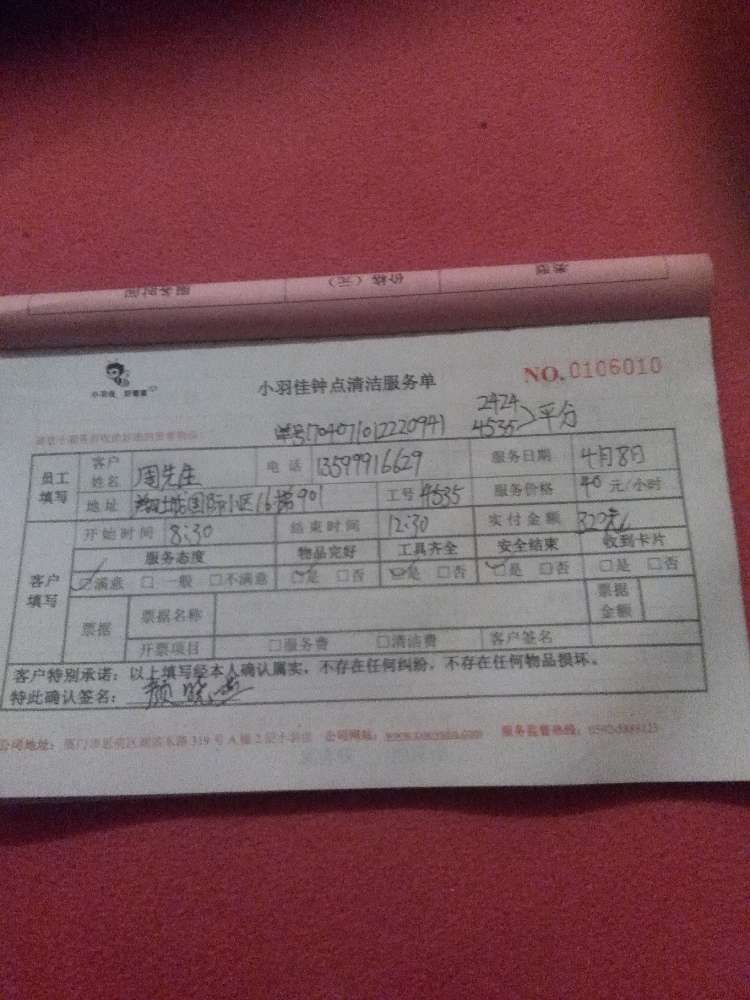 服务时间 价格（元） 类型
小羽佳 好管家
小羽佳钟点清洁服务单
NO.0106010
单号1704071012220941
2424
4535 平分
员工填写
客户姓名 周先生 电话 13599916629 服务日期 4月8日
地址 国际小区16梯901 工号 4535 服务价格 40 元/小时
客户填写
开始时间 8:30 结束时间 12:30 实付金额 320元
服务态度 物品完好 工具齐全 安全结束 收到卡片
☑满意 □一般 □不满意 ☑是 □否 ☑是 □否 ☑是 □否 □是 □否
票据 票据名称 票据金额
开票项目 □服务费 □清洁费 客户签名
客户特别承诺：以上填写经本人确认属实，不存在任何纠纷，不存在任何物品损坏。
特此确认签名： 颜晓
公司地址：厦门市思明区湖滨东路319号A幢2层 公司网站： 服务监督热线：